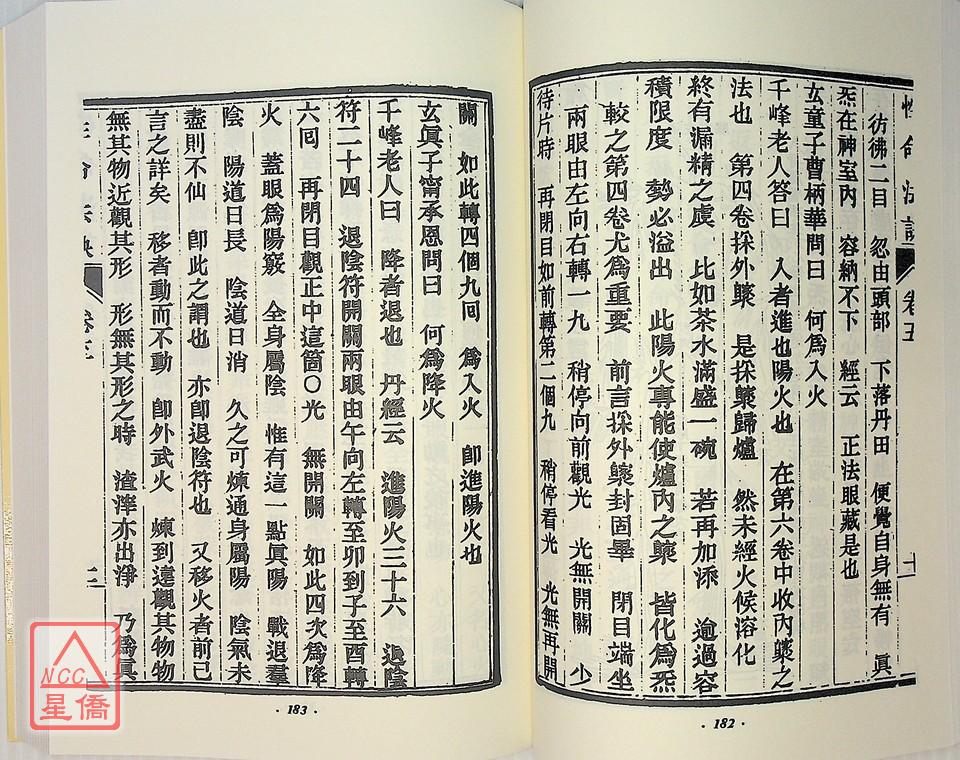 性命法訣 卷五 十一
彷彿二目 忽由頭部 下落丹田 便覺自身無有 眞
炁在神室內 容納不下 經云 正法眼藏是也
玄童子曹柄華問曰 何爲入火
千峰老人答曰 入者進也陽火也 在第六卷中收內藥之
法也 第四卷採外藥 是採藥歸爐 然未經火候溶化
終有漏精之虞 比如茶水滿盛一碗 若再加添 逾過容
積限度 勢必溢出 此陽火專能使爐內之藥 皆化爲炁
較之第四卷尤爲重要 前言採外藥封固畢 閉目端坐
兩眼由左向右轉一九 稍停向前觀光 光無開關 少
待片時 再閉目如前轉第二個九 稍停看光 光無再開
182
關 如此轉四個九回 爲入火 卽進陽火也
玄眞子甯承恩問曰 何爲降火
千峰老人曰 降者退也 丹經云 進陽火三十六 退陰
符二十四 退陰符開關兩眼由午向左轉至卯到子至酉轉
六回 再閉目觀正中這箇〇光 無開關 如此四次爲降
火 蓋眼爲陽竅 全身屬陰 惟有這一點眞陽 戰退羣
陰 陽道日長 陰道日消 久之可煉通身屬陽 陰氣未
盡則不仙 卽此之謂也 亦卽退陰符也 又移火者前已
言之詳矣 移者動而不動 卽外武火 煉到遠觀其物物
無其物近觀其形 形無其形之時 渣滓亦出淨 乃爲眞
卷五 十二
183
NCC
星僑